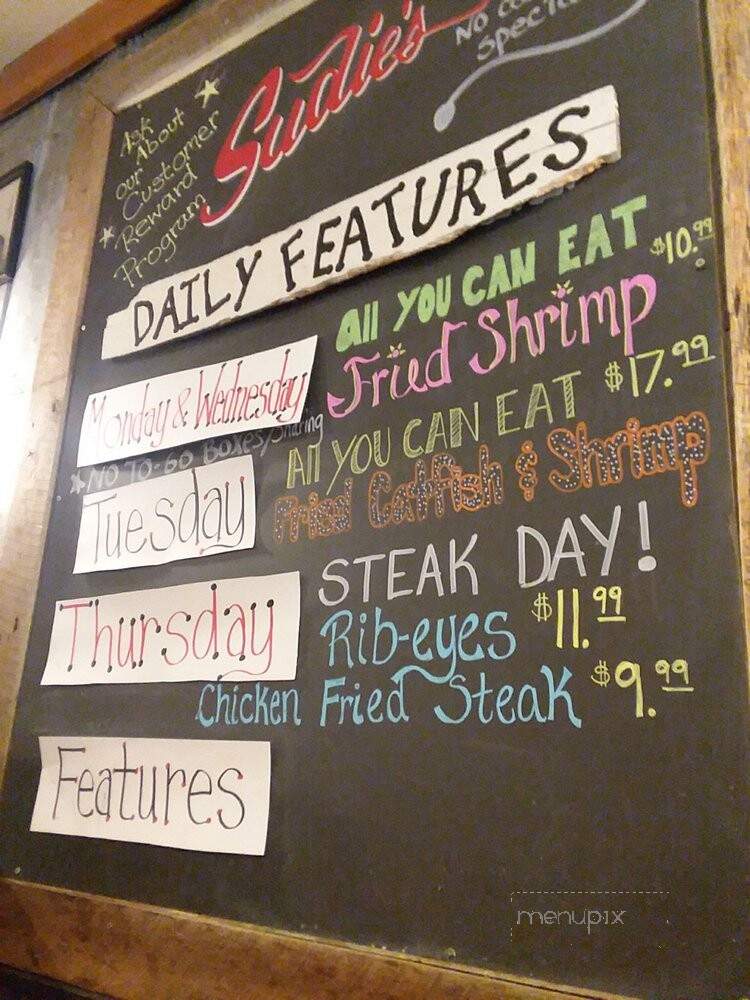 Sudie's
No
Ask
About
our
Customer
Reward
Program
DAILY FEATURES
Monday & Wednesday
All YOU CAN EAT
Fried Shrimp
$10.99
*NO TO-GO BOXES/Sharing
Tuesday
All YOU CAN EAT
$17.99
Fried Catfish & Shrimp
Thursday
STEAK DAY!
Rib-eyes $11.99
Chicken Fried Steak $9.99
Features
menupix